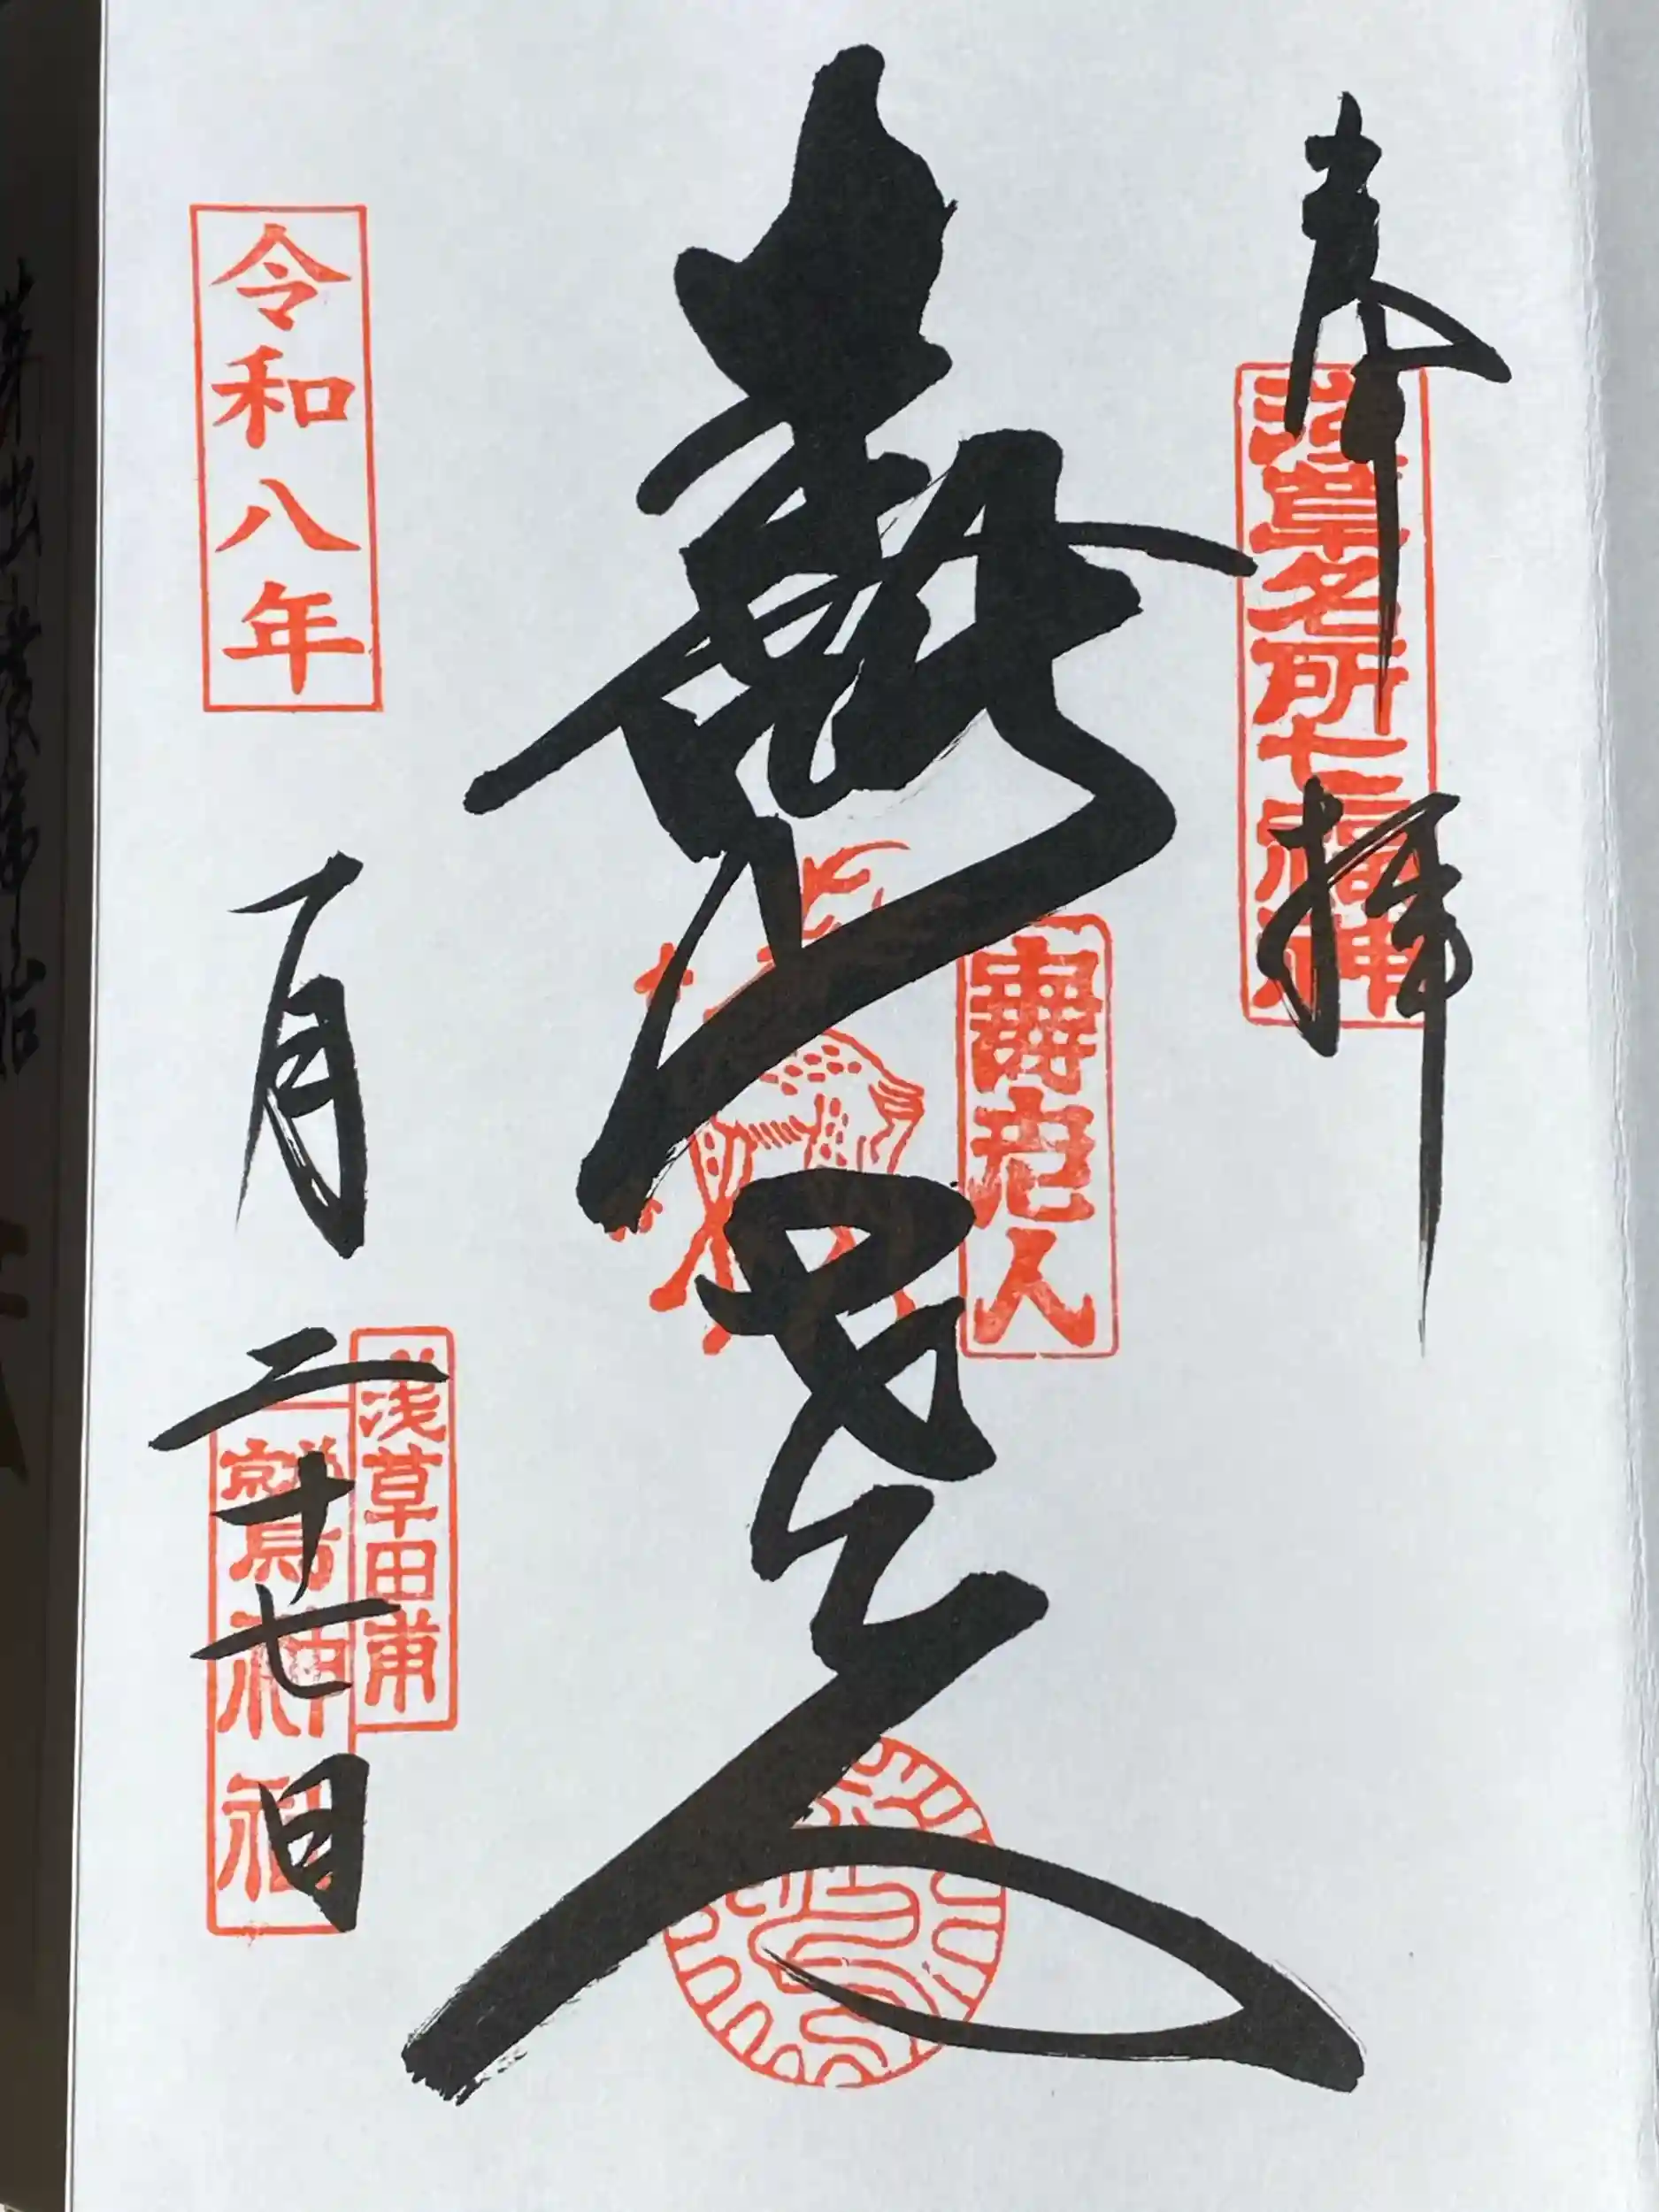 奉拝
浅草名所七福神
壽老人
壽老人
令和八年
一月二十七日
浅草田甫
鷲神社